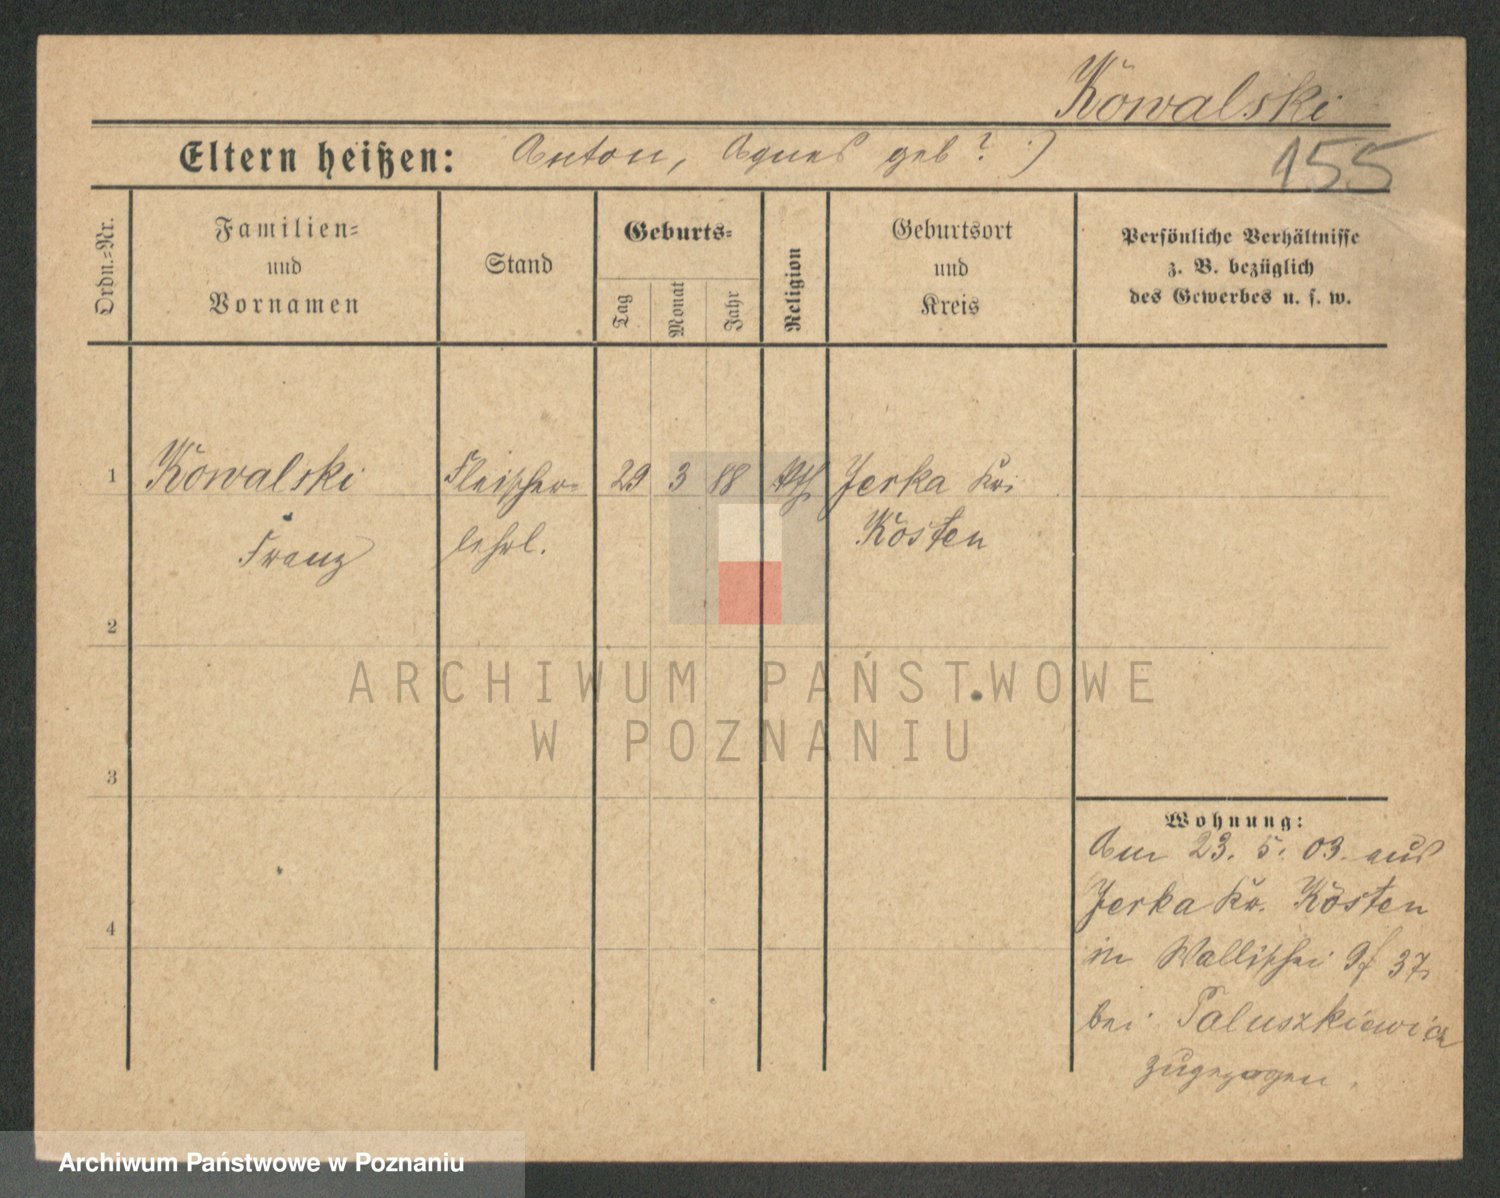 Kowalski
Eltern heißen: Anton, Agnes geb? )
155
Ordn.=Nr.
Familien=
und
Vornamen
Stand
Geburts=
Tag
Monat
Jahr
Religion
Geburtsort
und
Kreis
Persönliche Verhältnisse
z. B. bezüglich
des Gewerbes u. s. w.
1 Kowalski Fleischer= 29 3 88 kth Jerka Kr:
Franz lehrl. Kosten
2
3
4
Wohnung:
Am 23. 5. 03. aus
Jerka Kr. Kosten
in Wallischei 37
bei Paluszkiewicz
zugezogen.
ARCHIWUM PAŃSTWOWE
W POZNANIU
Archiwum Państwowe w Poznaniu